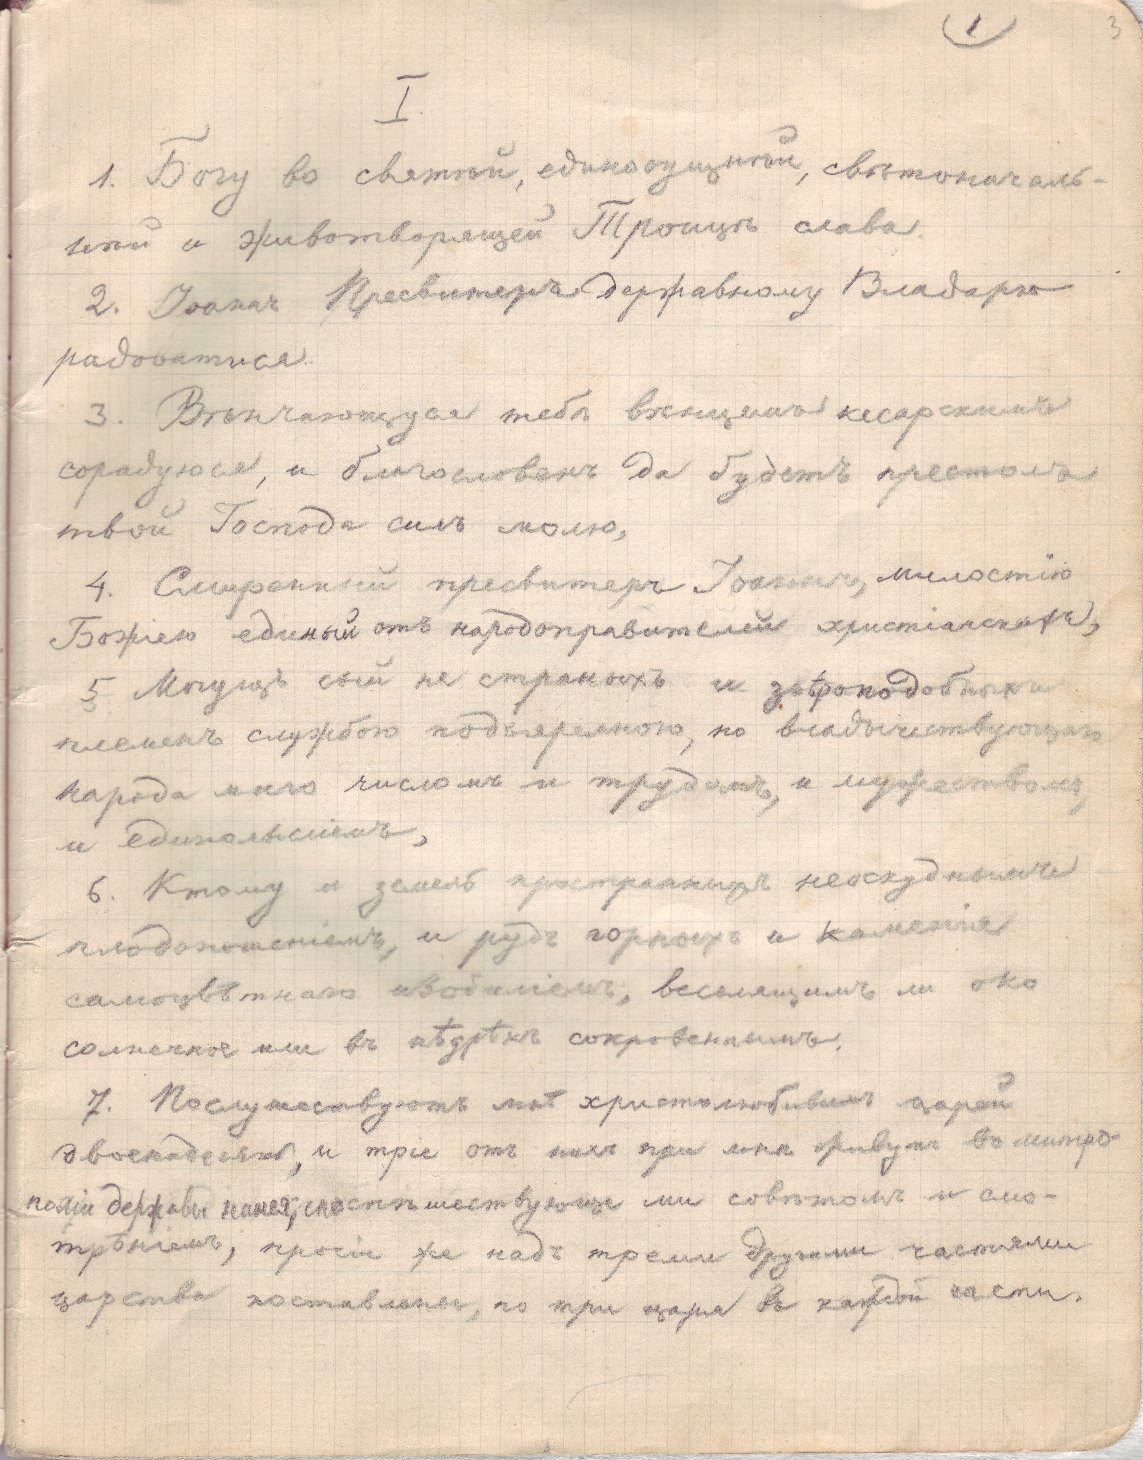 1 3
I.
1. Богу во святѣй, единосущнѣй, свѣтоначаль-
нѣй и животворящей Троицѣ слава.
2. Іоаннъ Пресвитеръ державному Владарю
радоватися.
3. Вѣнчающуся тебѣ вѣнцемъ кесарскимъ
сорадуюся, и благословенъ да будетъ престолъ
твой Господа силъ молю,
4. Смиренный пресвитеръ Іоаннъ, милостію
Божіею единый отъ народоправителей христіанскихъ,
5 Могущъ сый не странныхъ и звѣроподобныхъ
племенъ службою подъяремною, но владычествующаго
народа моего числомъ и трудомъ, и мужествомъ,
и единомысліемъ,
6. Ктому и земель пространныхъ неоскуднымъ
плодоношеніемъ, и рудъ горныхъ и каменія
самоцвѣтнаго изобиліемъ, веселящимъ ли око
солнечное или въ нѣдрѣхъ сокровеннымъ.
7. Послушествуютъ мнѣ христолюбивыхъ царей
двоенадесять, и тріе отъ нихъ при мнѣ живутъ въ митро-
поліи державы нашея, споспѣшествующе ми совѣтомъ и смо-
трѣніемъ, прочіи же надъ треми другими частями
царства поставлены, по три царя въ каждой части.